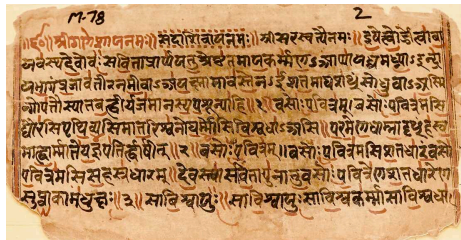 M-78 2
श्रीगणेशायनमः॥ श्रीसरस्वत्यैनमः॥ इषेत्वोर्जेत्वावा
यवस्थदेवोवः सविताप्रार्पयतुश्रेष्ठतमायकर्म्मणऽआप्यायध्वमघ्न्याऽइन्द्रा
यभागंप्रजावतीरनमीवाऽअयक्ष्मामावस्तेनऽईशतमाघशꣳसोध्रुवाऽअस्मि
न्गोपतौस्यातबह्वीर्यजमानस्यपशून्पाहि॥१॥वसोःपवित्रम्॥वसोःपवित्रमसि
द्यौरसिपृथिव्यसिमातरिश्वनोघर्मोसिविश्वधाऽअसि॥परमेणधाम्नादृꣳहस्व
माह्वार्मातेयज्ञपतिर्ह्वार्षीत्॥२॥वसोःपवित्रम्॥वसोःपवित्रमसिशतधारंवसोः
पवित्रमसिसहस्रधारम्॥देवस्त्वासवितापुनातुवसोःपवित्रेणशतधारेण
सुप्वाकामधुक्षः॥३॥साविश्वायुः॥साविश्वायुःसाविश्वकर्म्मासाविश्वधा